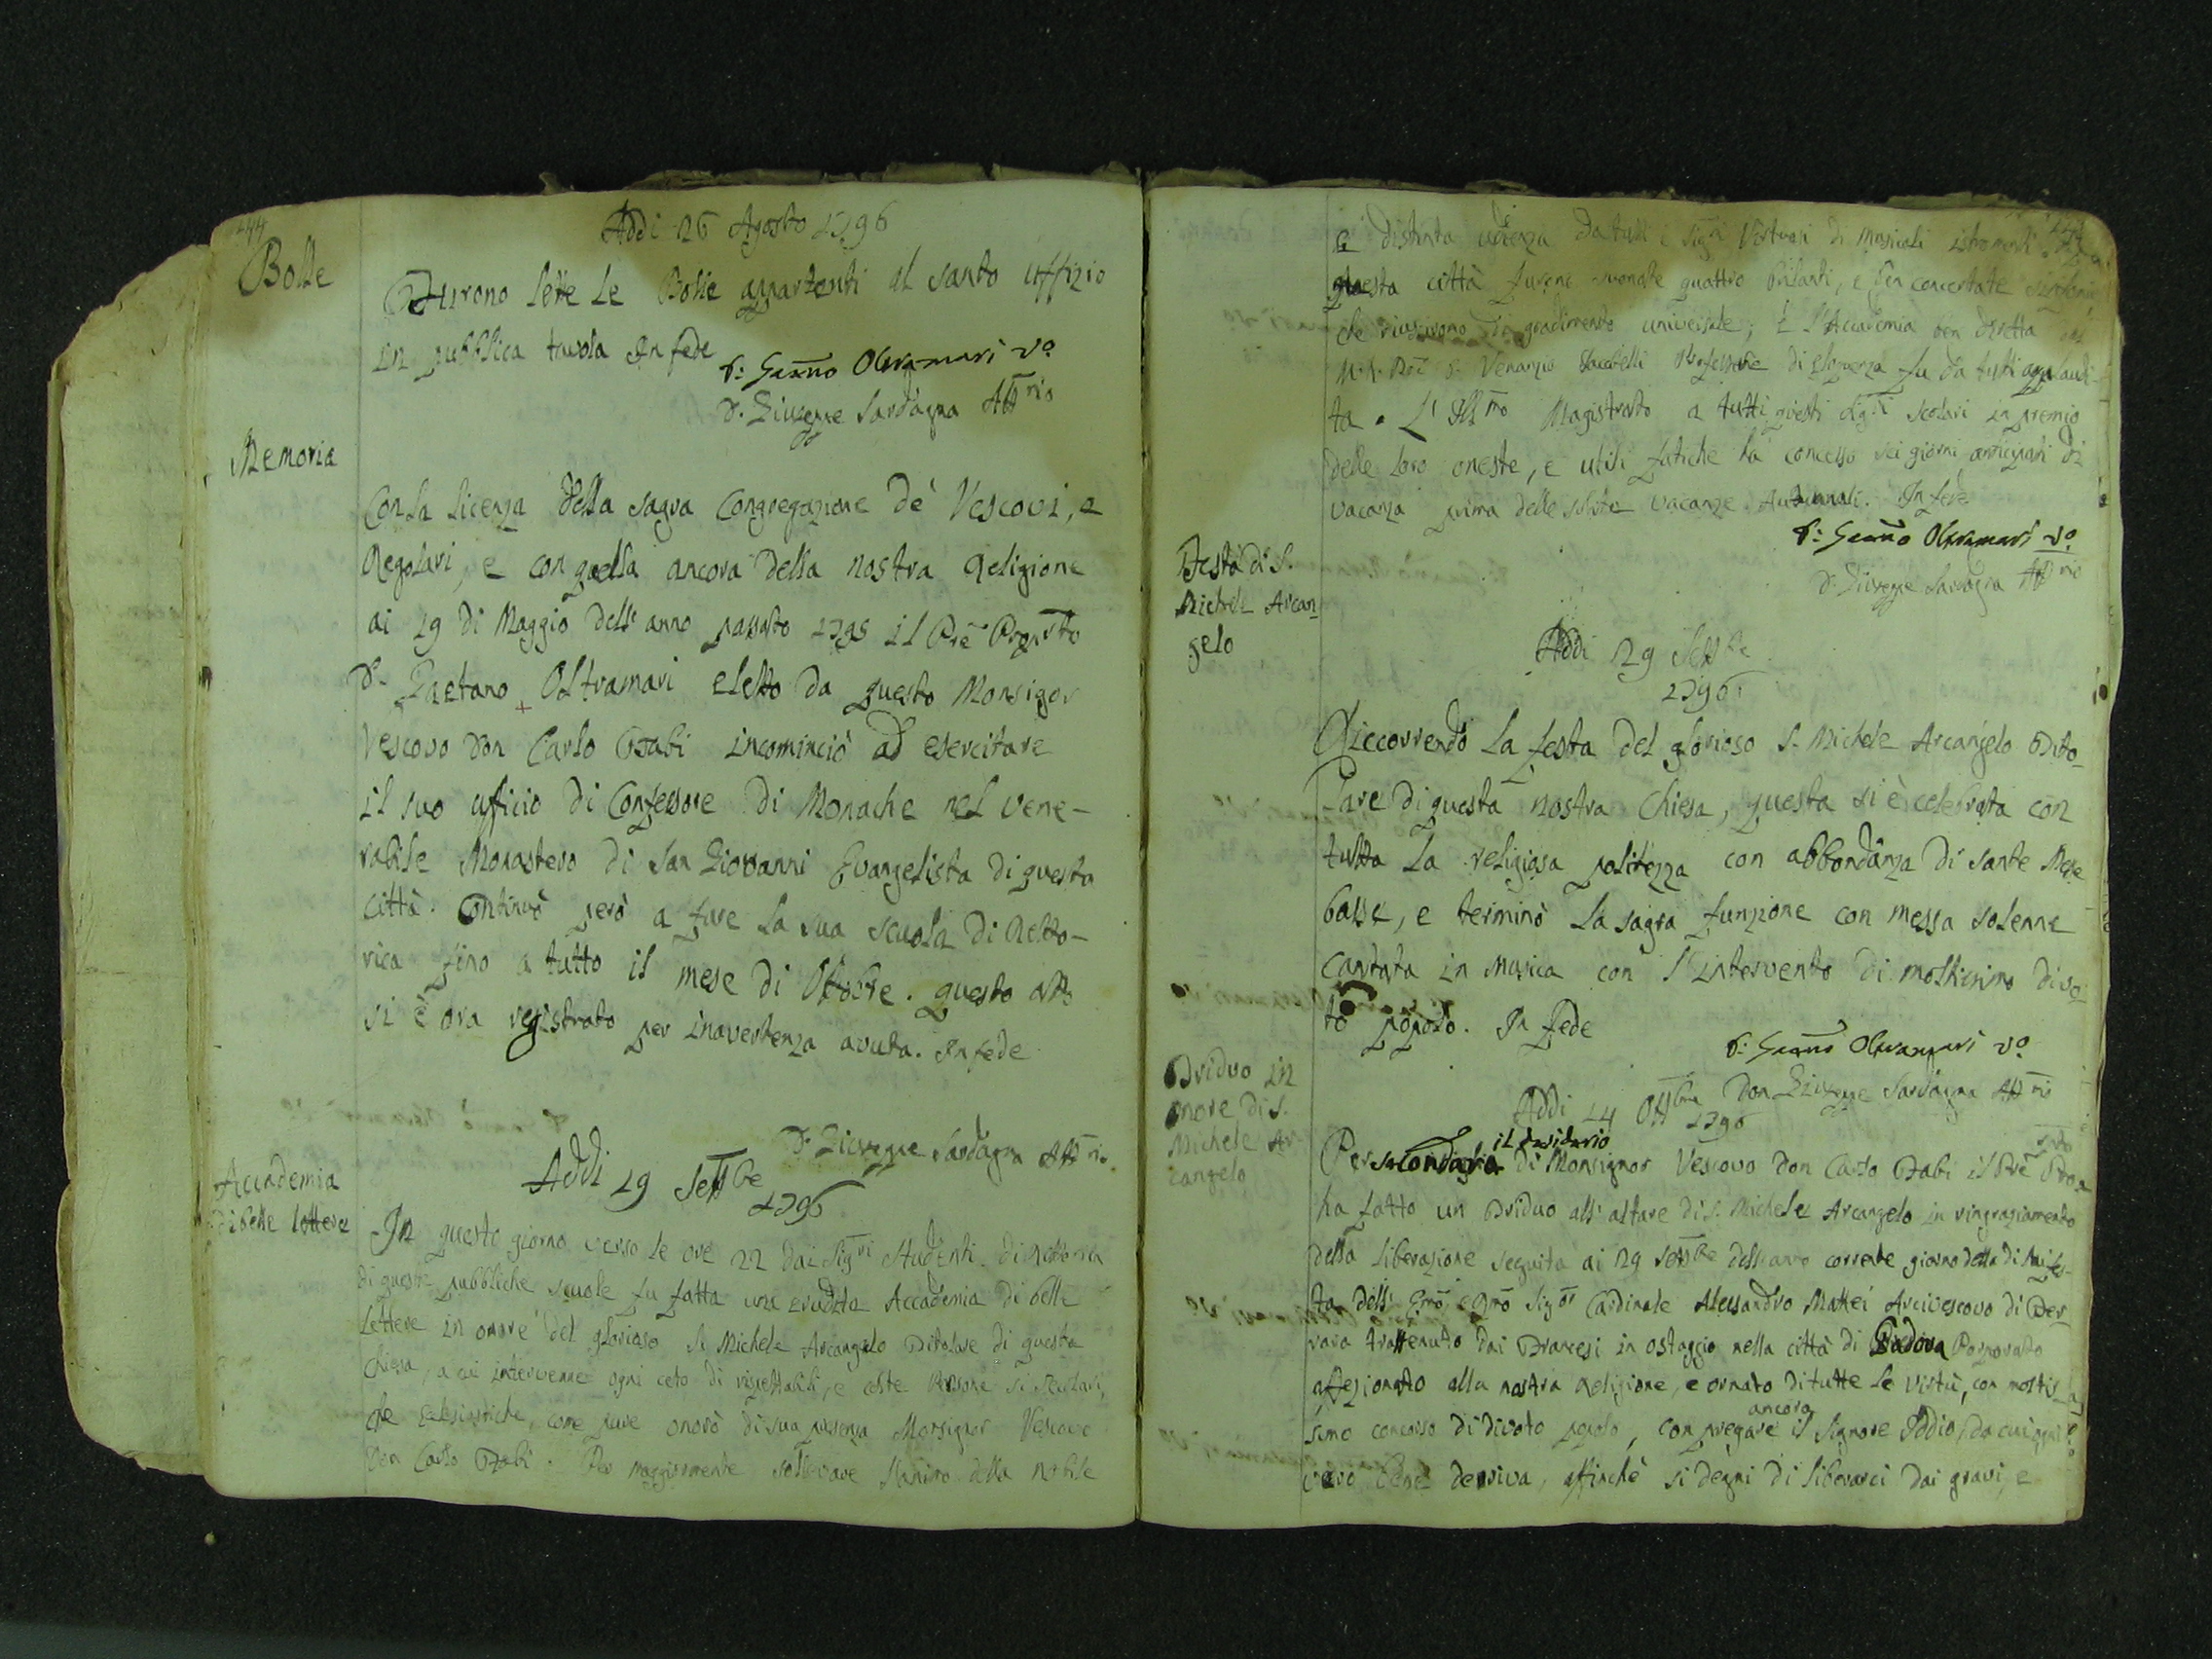 244
Addi 26 Agosto 1796
Bolle
Furono lette le Bolle appartenti al santo Uffizio
in pubblica tavola In fede
D: Gaetno Oltramari Vo
D. Giuseppe Sardagna Attrio
Memoria
Con la licenza della sagra Congregazione de' Vescovi, e
Regolari, e con quella ancora della nostra Religione
ai 19 di Maggio dell' anno passato 1795 il Pre Propsto
D. Gaetano Oltramari eletto da questo Monsigor
Vescovo Don Carlo Fabi incominciò ad esercitare
il suo uficio di Confessore di Monache nel vene-
rabile Monastero di San Giovanni Evangelista di questa
Città. Continuò però a fare la sua scuola di Retto-
rica fino a tutto il mese di Ottobre. questo atto
si è ora registrato per inavertenza avuta. In fede
D. Giuseppe Sardagna Attrio
Addi 19 Settbe
1796
Accademia
di belle lettere
In questo giorno verso le ore 22 dai Sigri Studenti di Rettorica
di queste pubbliche scuole fu fatta una erudita Accademia di belle
Lettere in onore del glorioso S. Michele Arcangelo Titolare di questa
Chiesa, a cui intervenne ogni ceto di rispettabili, e colte Persone si secolari,
che Eclesiastiche, come pure onorò di sua presenza Monsignor Vescovo
Don Carlo Fabi. Per maggiormente sollevare l'animo della nobile
e distinta udienza da tutti i Sigri Virtuosi di Musicali istromenti di
questa città furono suonate quattro brilanti, e ben concertate sinfonie
che riuscirono di gradimento universale; E l'Accademia ben diretta dal
M. R. Pre D. Venanzio Professore di eloquenza fu da tutti applaudi-
ta. L' Illmo Magistrato a tutti questi Sigri scolari in premio
delle loro oneste, e utili fatiche ha concesso sei giorni anticipati di
vacanza prima delle solite vacanze Autunnali. In fede
D: Gaetno Oltramari Vo
D. Giuseppe Sardagna Attrio
Festa di S.
Michele Arcan-
gelo
Addi 29 Settbe
1796
Riccorrendo la festa del glorioso S. Michele Arcangelo Tito-
lare di questa nostra Chiesa, questa si è celebrata con
tutta la religiosa politezza con abbondanza di sante Messe
basse, e terminò la sagra funzione con messa solenne
cantata in musica con l'intervento di moltissimo divo-
to popolo. In fede
D: Gaetno Oltramari Vo
Don Giuseppe Sardagna Attrio
Triduo in
onore di S.
Michele Ar-
cangelo
Addi 14 Ottbre
1796
il desiderio
Per secondare di Monsignor Vescovo Don Carlo Fabi il Pre Propsto
ha fatto un Triduo all' altare di S. Michele Arcangelo in ringraziamento
della liberazione seguita ai 29 Settbe dell'anno corrente giorno della di lui fes-
ta dell' Emo, e Rmo Sigor Cardinale Alessandro Mattei Arcivescovo di Fer-
rara trattenuto dai Francesi in ostaggio nella città di
affezionato alla nostra Religione, e ornato di tutte le virtù, con moltis-
ancora
simo concorso di divoto popolo, con pregare il Signore Iddio, da cui ogni
vero bene derriva, affinchè si degni di liberarci dai gravi, e